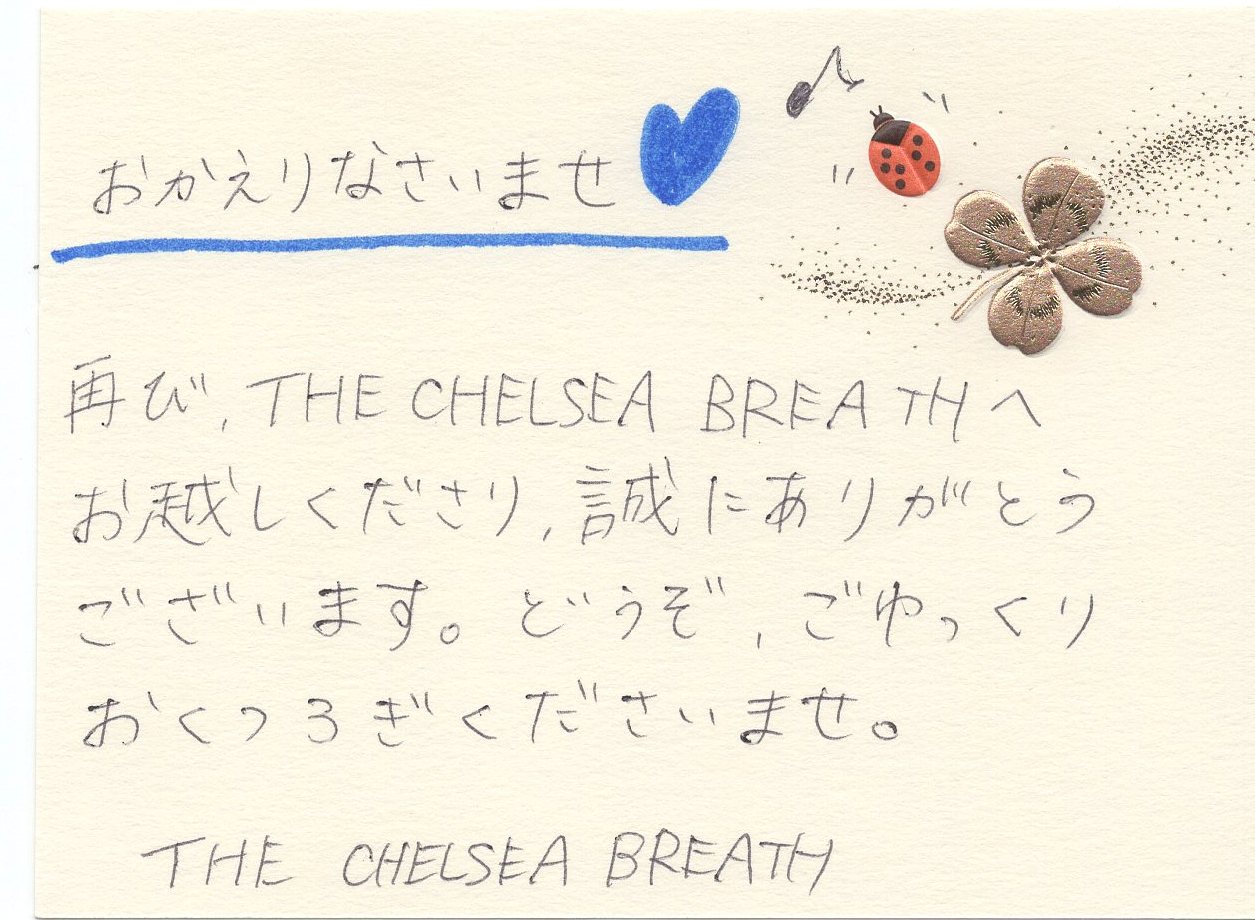 おかえりなさいませ
再び, THE CHELSEA BREATHへ
お越しくださり, 誠にありがとう
ございます。どうぞ, ごゆっくり
おくつろぎくださいませ。
THE CHELSEA BREATH